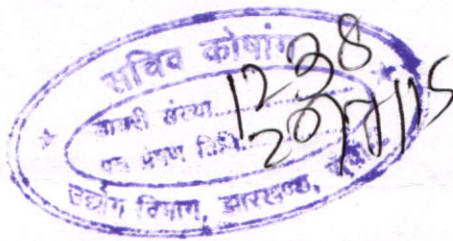 सचिव कोषांग
डायरी संख्या 1238
पत्र प्राप्त तिथि
उद्योग विभाग, झारखण्ड,